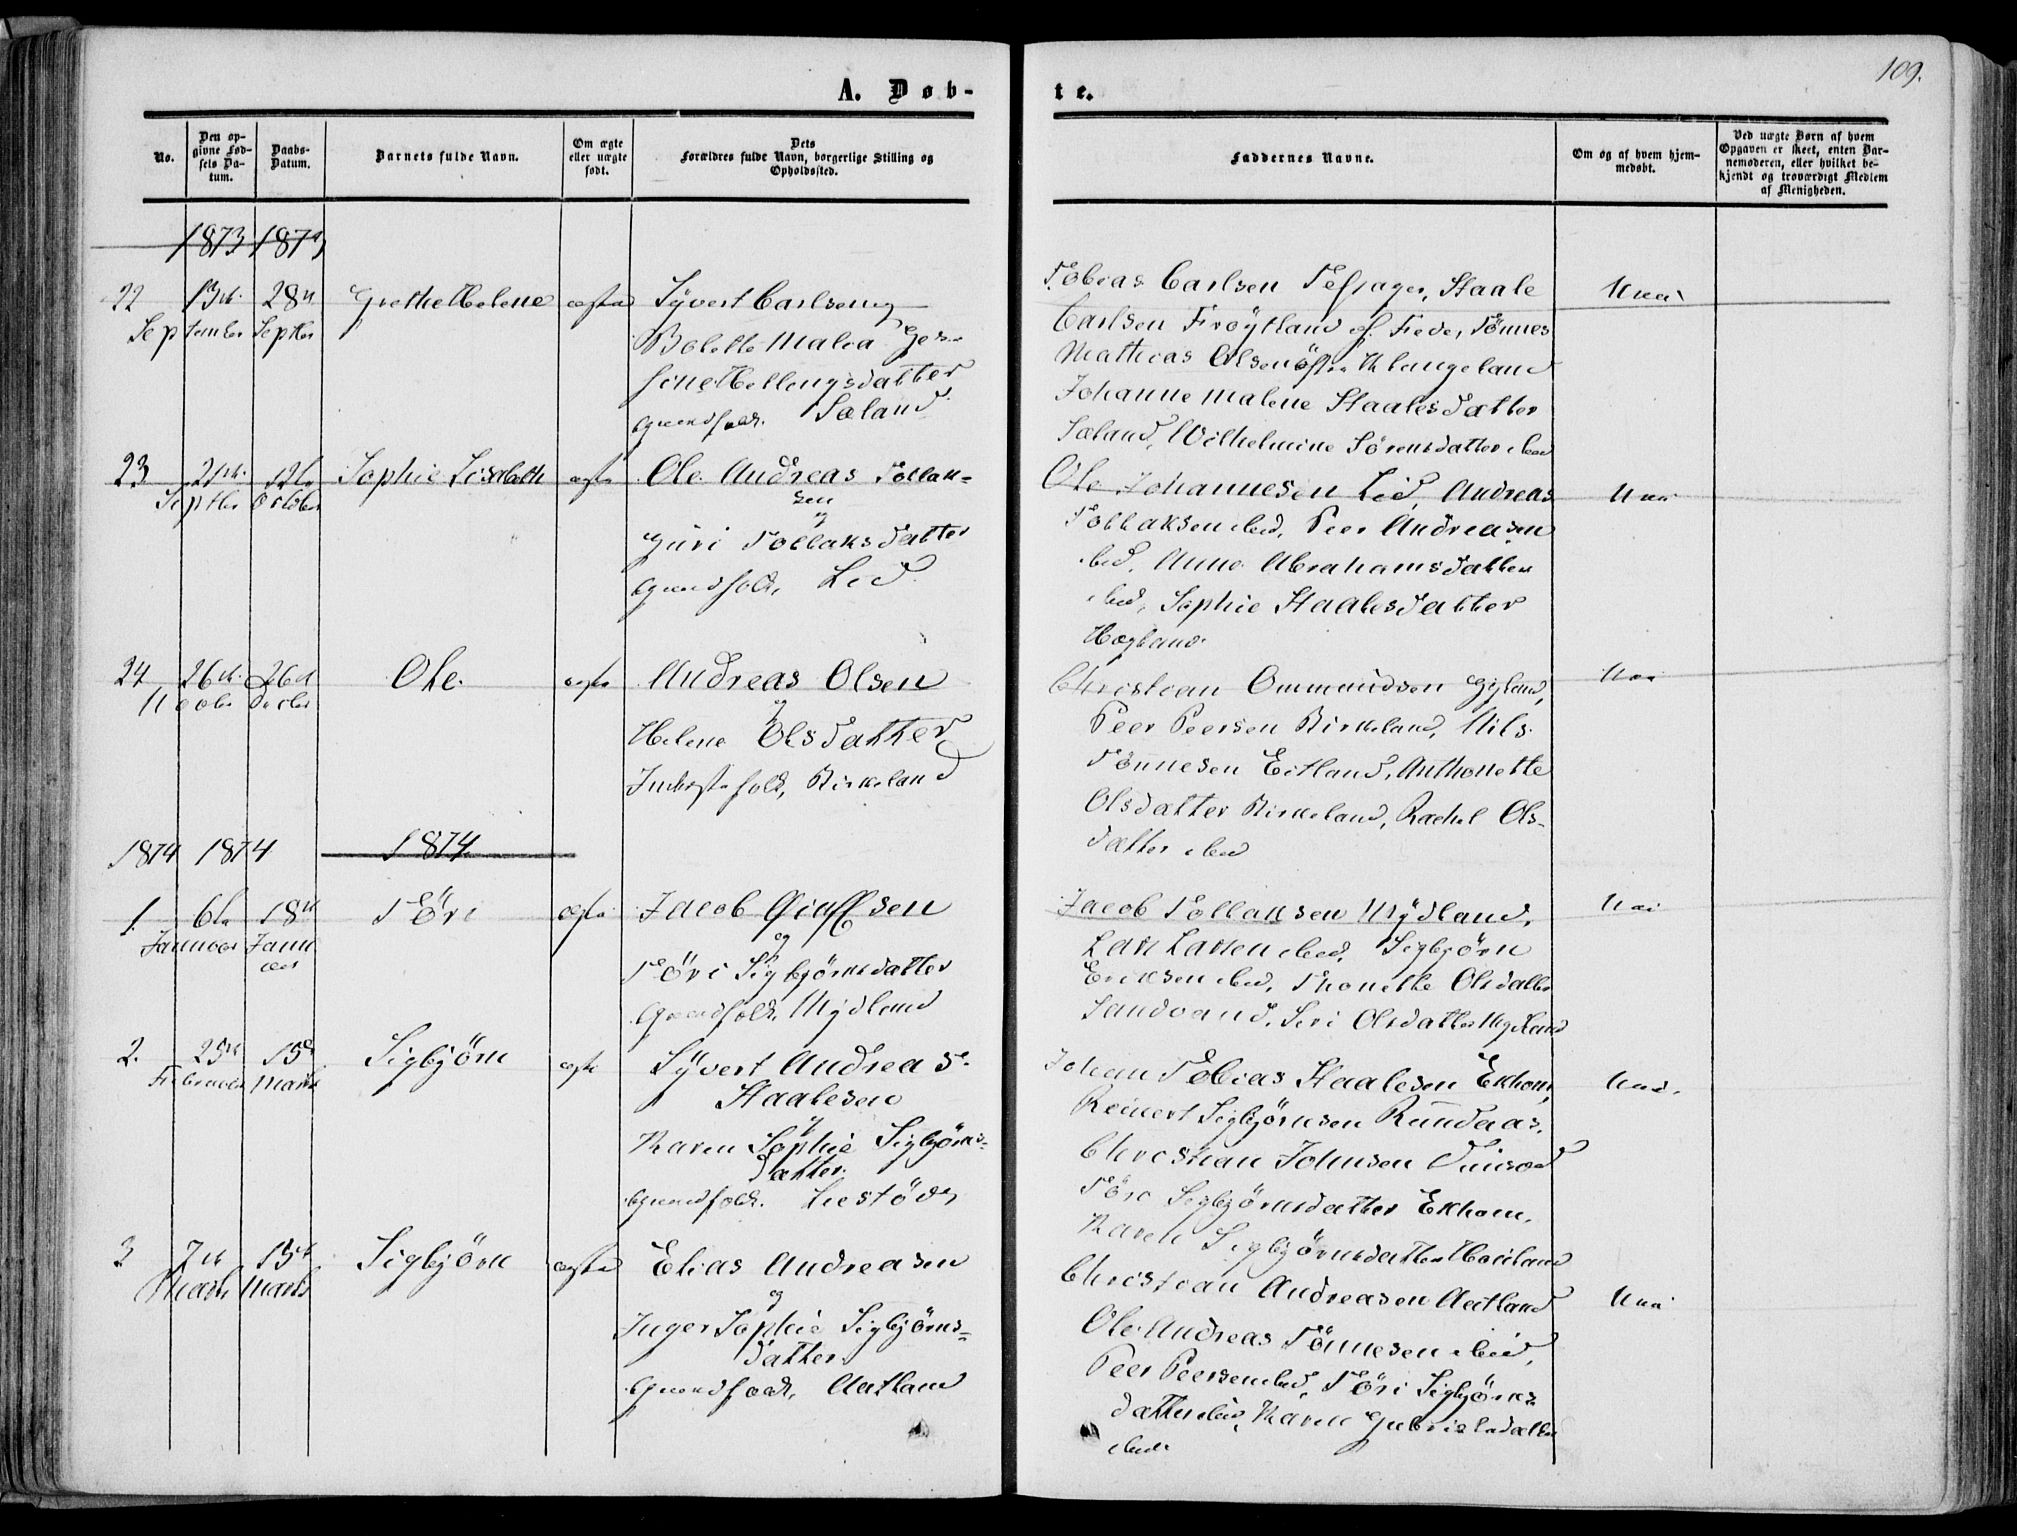 109.
A. Døb-
te.
No.
Den op-
givne Fød-
sels Da-
tum.
Daabs-
Datum.
Barnets fulde Navn.
Om ægte
eller uægte
født.
Dets
Forældres fulde Navn, borgerlige Stilling og
Opholdssted.
Faddernes Navne.
Om og af hvem hjem-
medøbt.
Ved uægte Børn af hvem
Opgaven er skeet, enten Bar-
nemoderen, eller hvilket be-
kjendt og troværdigt Medlem
af Menigheden.
1873 1873
22 13de 28de Grethe Helene ægte Syvert Carlsen og
September Septbr
Bolette Malea Ger-
sine Hellengsdatter
Gaardfolk. Sæland
Tobias Carlsen Staale
Carlsen Frøytland af Fede, Tønnes
Mathias Olsen
Johanne Malene Staalesdatter
Sæland, Wilhelmine Sørensdatter ibid
23 21de 12te Sophie Lisabeth ægte Ole Andreas Tollak-
Septbr Octobr
sen
og
Guri Tollaksdatter
Gaardfolk, Lid
Ole Johannesen Lid, Andreas
Tollaksen ibid, Peer Andreasen
ibid, Anne Abrahamsdatter
ibid, Sophie Staalesdatter
Hægland.
24 26de 26de Ole ægte Andreas Olsen
Novbr Decbr
og
Helene Olsdatter
Inderstefolk, Birkeland
Christian Ommundsen Gyland,
Peer Peersen Birkeland, Nils
Tønnesen Eitland, Anthonette
Olsdatter Birkeland, Rachel Ols-
datter ibid
1874 1874 1874
1. 6te 18de Töri ægte Jacob
Januar Janu
ar
og
Töri Sigbjørnsdatter
Gaardfolk, Mydland
Jacob Tollaksen Mydland,
Lars Larsen ibid, Sigbjørn
Eriksen ibid, Thonette Olsdatter
Sandvand, Siri Olsdatter
2. 25de 15de Sigbjørn ægte Syvert Andreas
Februar Marts
Staalesen
og
Karen Sophie Sigbjørns-
datter
Gaardfolk. Liestöl
Johan Tobias Staalesen Ekhom,
Reinert Sigbjørnsen Rundaas,
Christian Johnsen
Töri Sigbjørnsdatter Ekhom,
Karen Sigbjørnsdatter
3 7de 15de Sigbjørn ægte Elias Andreasen
Marts Marts
og
Inger Sophie Sigbjørns-
datter
Gaardfolk, Aatland
Christian Andreasen Aatland
Ole Andreas Tønnesen ibid,
Peer Peersen ibid, Töri Sigbjørns-
datter ibid, Karen Gabrielsdatter
ibid.